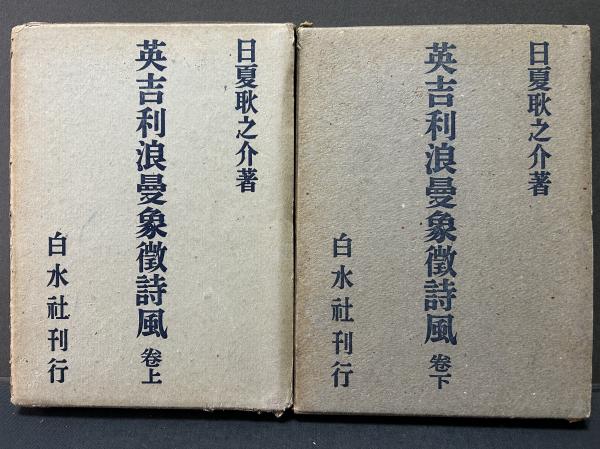 日夏耿之介著
英吉利浪曼象徵詩風 卷上
白水社刊行
日夏耿之介著
英吉利浪曼象徵詩風 卷下
白水社刊行